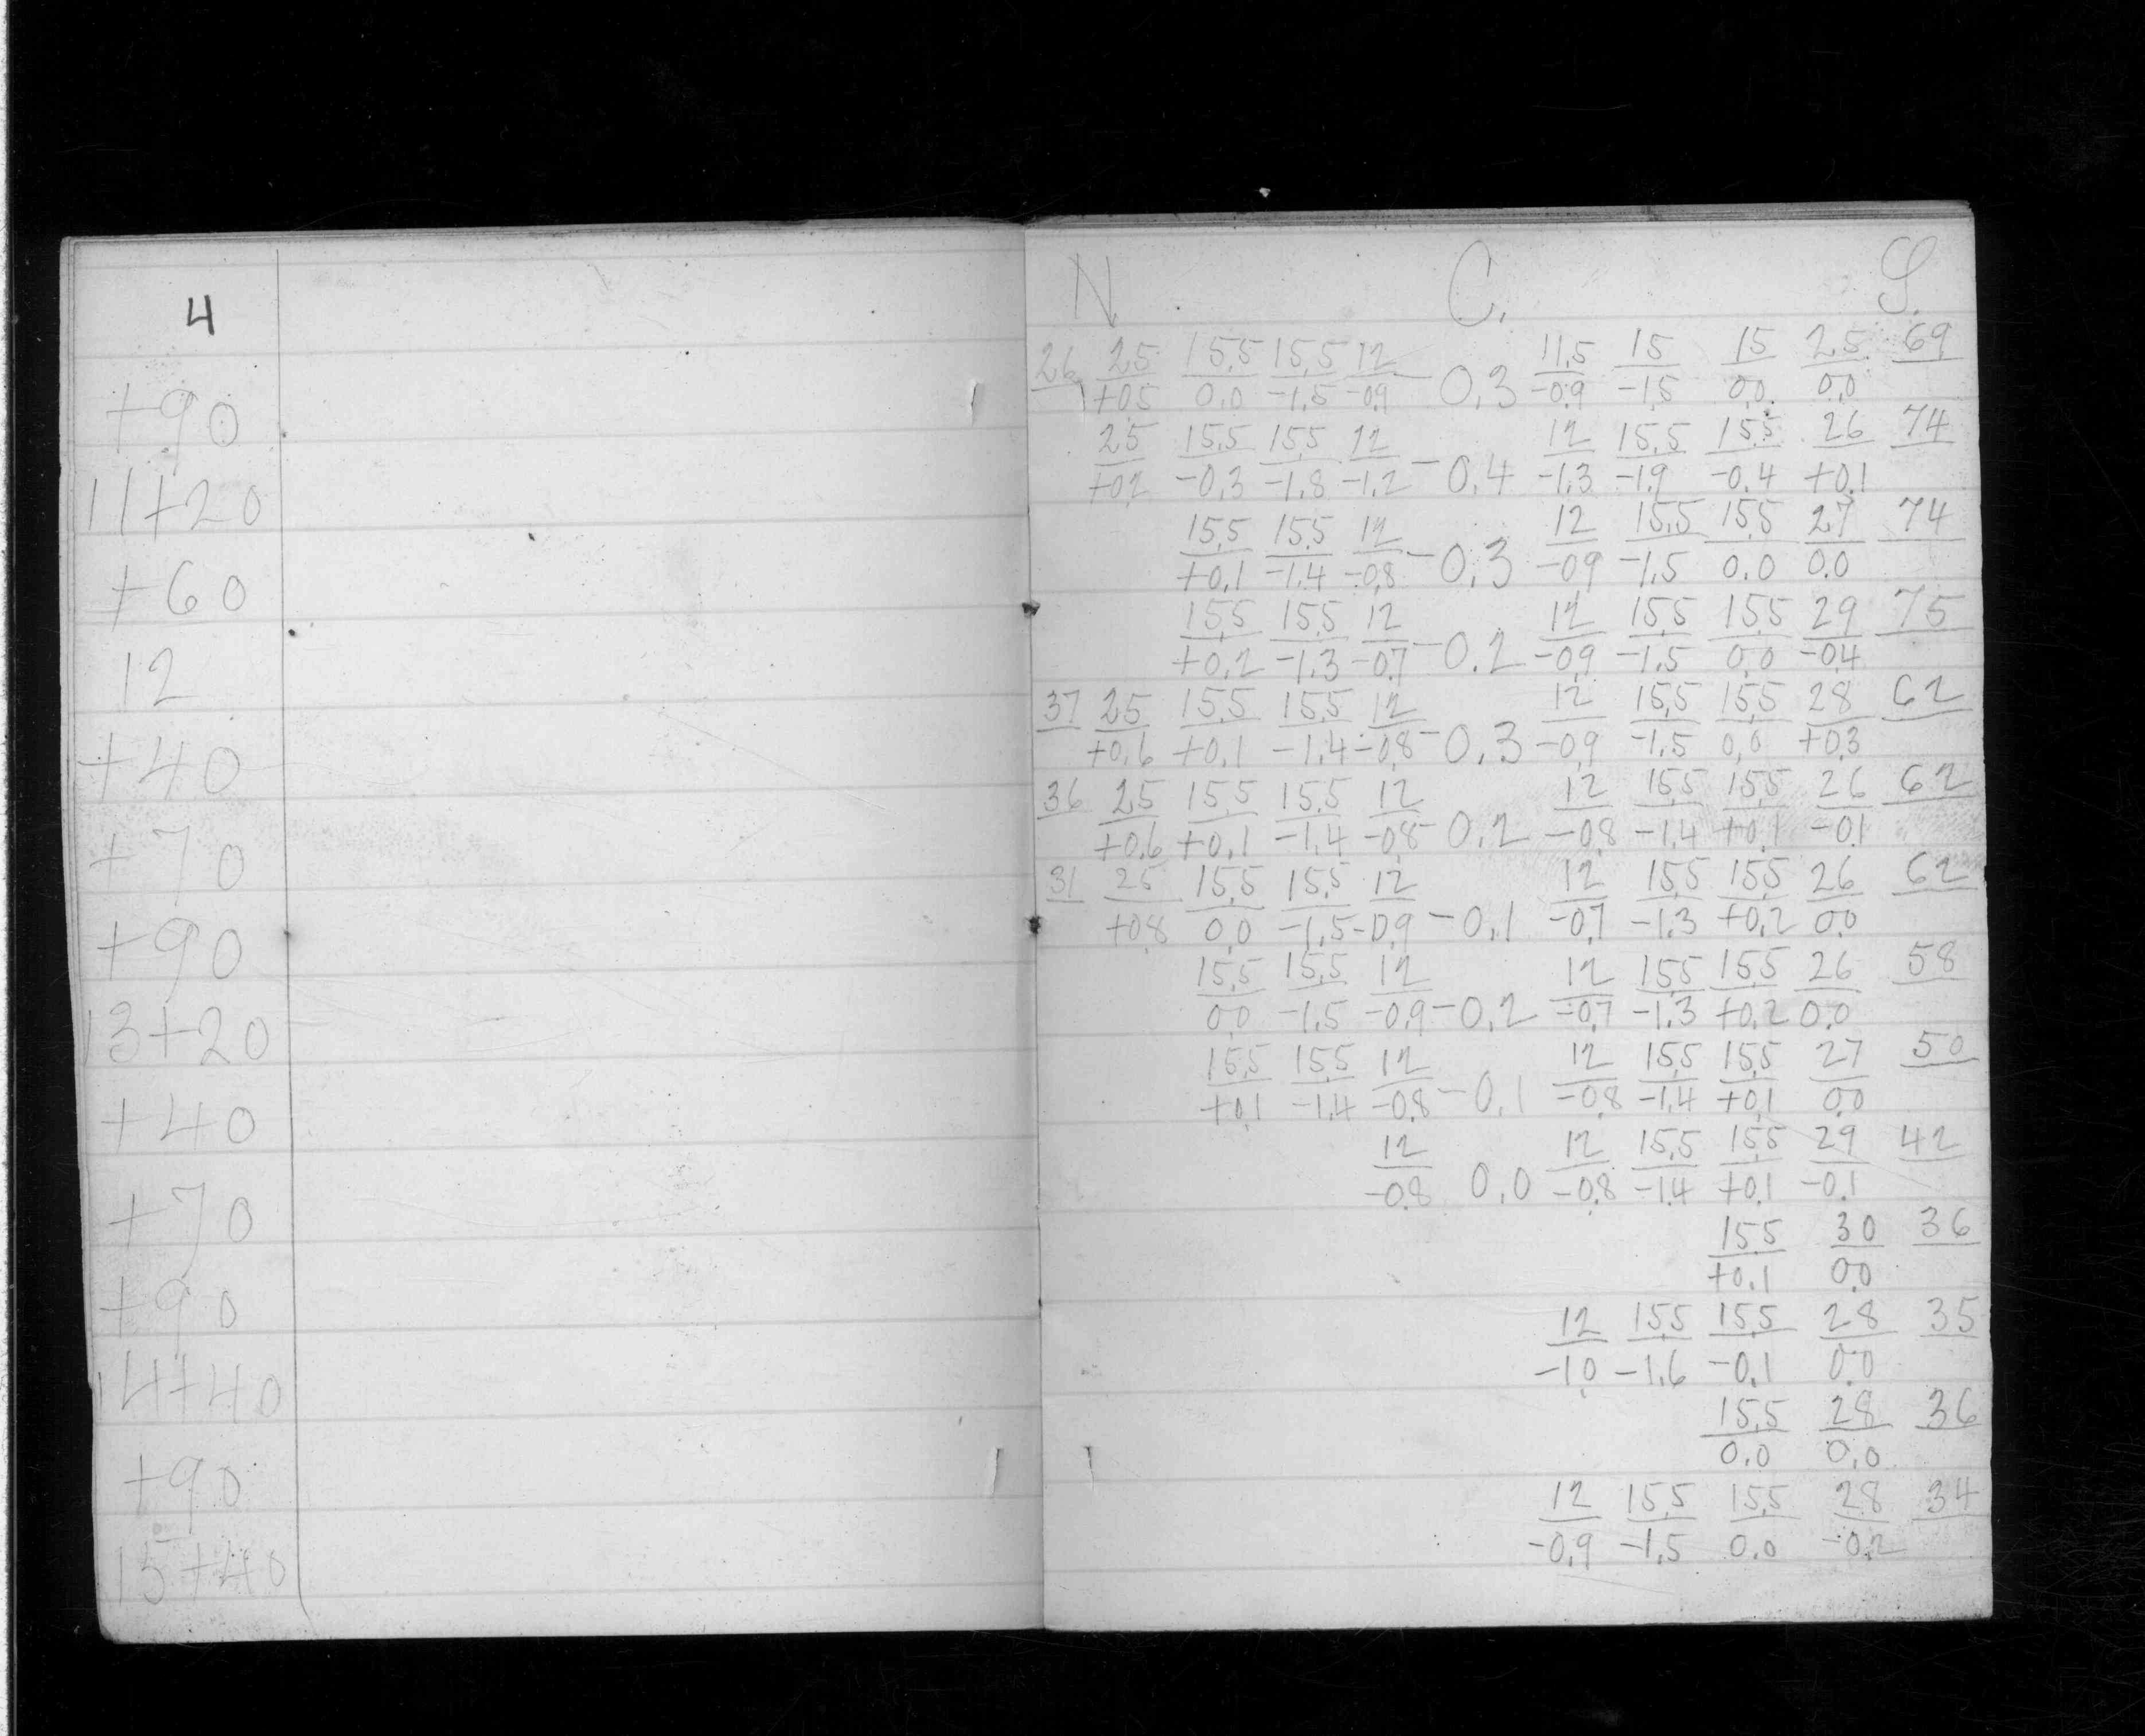 4
+90
11+20
+60
12
+40
+70
+90
13+20
+40
+70
+90
14+40
+90
15+40
N C. S.
26 25 15,5 15,5 12 11,5 15 15 25 69
+0,5 0,0 -1,5 -0,9 -0,3 -0,9 -1,5 0,0 0,0
25 15,5 15,5 12 12 15,5 15,5 26 74
+0,2 -0,3 -1,8 -1,2 -0,4 -1,3 -1,9 -0,4 +0,1
15,5 15,5 12 12 15,5 15,5 27 74
+0,1 -1,4 -0,8 -0,3 -0,9 -1,5 0,0 0,0
15,5 15,5 12 12 15,5 15,5 29 75
+0,2 -1,3 -0,7 -0,2 -0,9 -1,5 0,0 -0,4
37 25 15,5 15,5 12 12 15,5 15,5 28 62
+0,6 +0,1 -1,4 -0,8 -0,3 -0,9 -1,5 0,0 +0,3
36 25 15,5 15,5 12 12 15,5 15,5 26 62
+0,6 +0,1 -1,4 -0,8 -0,2 -0,8 -1,4 +0,1 -0,1
31 25 15,5 15,5 12 12 15,5 15,5 26 62
+0,8 0,0 -1,5 -0,9 -0,1 -0,7 -1,3 +0,2 0,0
15,5 15,5 12 12 15,5 15,5 26 58
0,0 -1,5 -0,9 -0,2 -0,7 -1,3 +0,2 0,0
15,5 15,5 12 12 15,5 15,5 27 50
+0,1 -1,4 -0,8 -0,1 -0,8 -1,4 +0,1 0,0
12 12 15,5 15,5 29 42
-0,8 0,0 -0,8 -1,4 +0,1 -0,1
15,5 30 36
+0,1 0,0
12 15,5 15,5 28 35
-1,0 -1,6 -0,1 0,0
15,5 28 36
0,0 0,0
12 15,5 15,5 28 34
-0,9 -1,5 0,0 -0,2